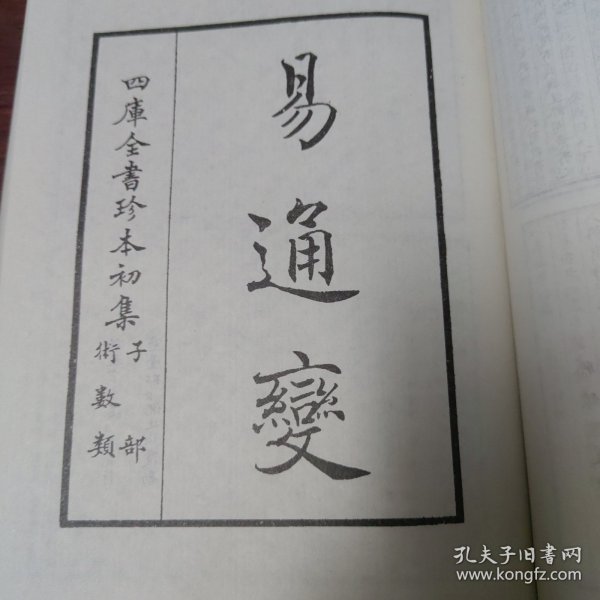 易通變
四庫全書珍本初集
子部
術數類
孔夫子旧书网
www.kongfz.com